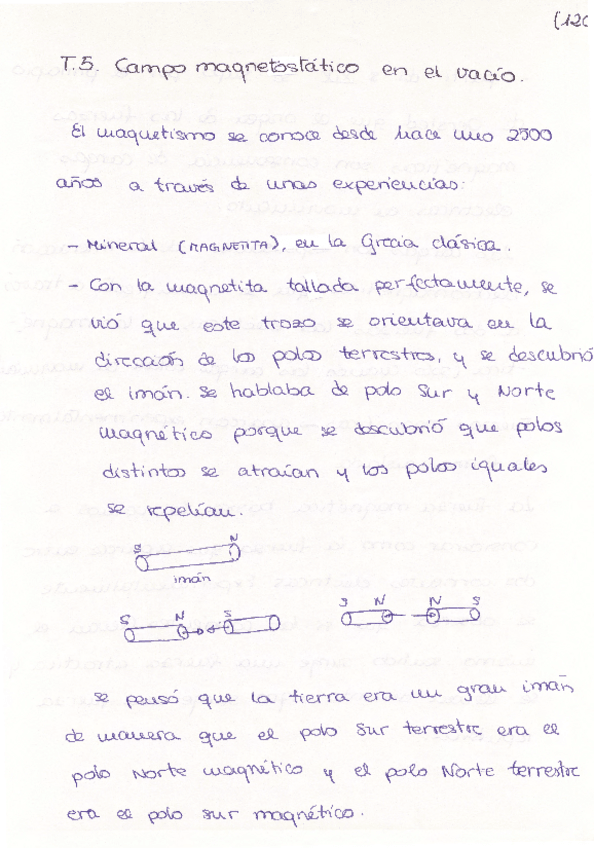 (120
T.5. Campo magnetostático en el vacío.
El magnetismo se conoce desde hace uno 2500
años a través de unas experiencias:
- Mineral (MAGNETITA), en la Grecia clásica.
- Con la magnetita tallada perfectamente, se
vió que este trozo se orientava en la
dirección de los polos terrestres, y se descubrió
el imán. Se hablaba de polo Sur y Norte
magnético porque se descubrió que polos
distintos se atraían y los polos iguales
se repelían.
S N
imán
S N S
S N N S
Se pensó que la tierra era un gran imán
de manera que el polo Sur terrestre era el
polo Norte magnético y el polo Norte terrestre
era el polo sur magnético.